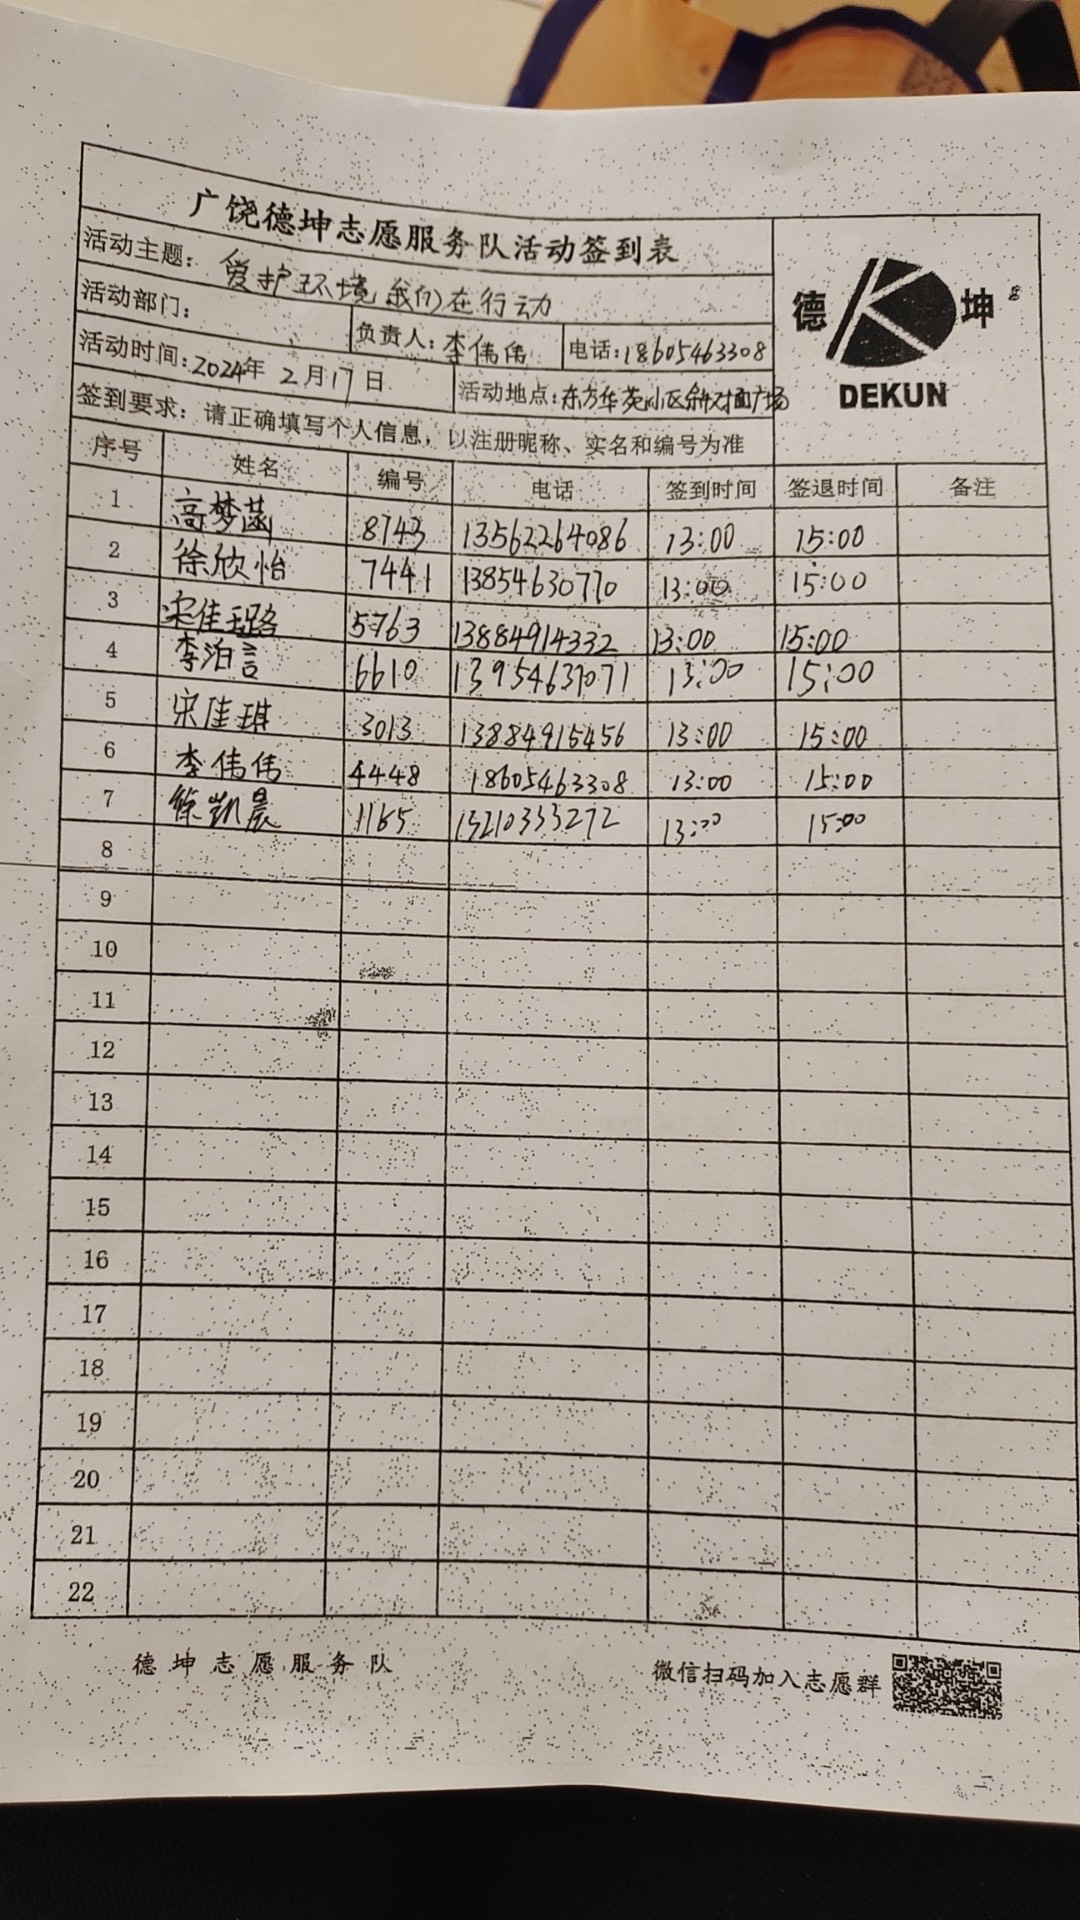 广饶德坤志愿服务队活动签到表
活动主题：爱护环境,我们在行动
活动部门： 负责人：李伟伟 电话：18605463308
活动时间：2024年 2月17日 活动地点：东方华苑小区斜对面广场
签到要求：请正确填写个人信息，以注册昵称、实名和编号为准
德 坤
DEKUN
序号 姓名 编号 电话 签到时间 签退时间 备注
1 高梦菡 8743 13562264086 13:00 15:00
2 徐欣怡 7441 13854630770 13:00 15:00
3 宋佳璐 5763 13884914332 13:00 15:00
4 李泊言 6610 13954637071 13:00 15:00
5 宋佳琪 3013 13884915456 13:00 15:00
6 李伟伟 4448 18605463308 13:00 15:00
7 徐凯晨 1165 15210333272 13:00 15:00
8
9
10
11
12
13
14
15
16
17
18
19
20
21
22
德坤志愿服务队 微信扫码加入志愿群